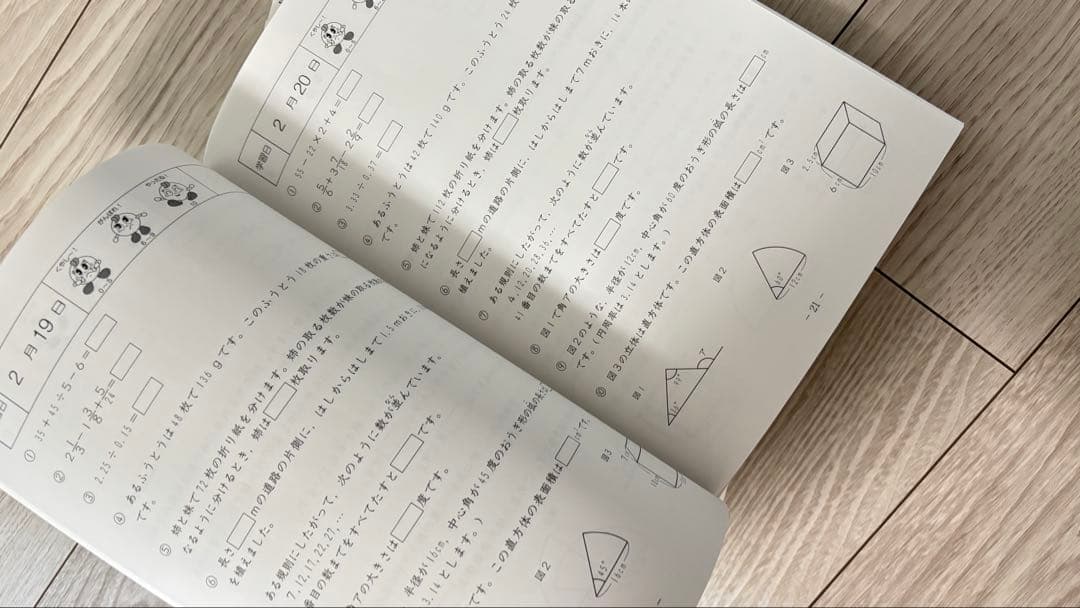 2月19日
くやし〜!
0〜5
がんばれ!
6〜8
やったね!
① 35+45÷5-6=
② 2 1/3-1 3/8+5/24=
③ 2.25÷0.15=
④ あるふうとうは48枚で136gです。このふうとう18枚の重
です。
⑤ 姉と妹で72枚の折り紙を分けます。姉の取る枚数が妹の取る
なるように分けるとき、姉は 枚取ります。
⑥ 長さ mの道路の片側に、はしからはしまで1.5mおきに、
を植えました。
ある規則にしたがって、次のように数が並んでいます。
7,12,17,22,27,…
番目の数までをすべてたすと です。
アの大きさは 度です。
半径が16cm、中心角が45度のおうぎ形の弧の長さ
3.14とします。)
です。この直方体の表面積は cm²です。
図2
45°
16cm
図3
学習日
2月20日
くやし〜!
0〜5
① 55-22×2+4=
② 5/6+3 7/18-2 2/9=
③ 3.33÷0.37=
④ あるふうとうは42枚で140gです。このふうとう24枚
です。
⑤ 姉と妹で112枚の折り紙を分けます。姉の取る枚数が妹の取る
になるように分けるとき、姉は 枚取ります。
⑥ 長さ mの道路の片側に、はしからはしまで7mおきに、14本
植えました。
⑦ ある規則にしたがって、次のように数が並んでいます。
4,12,20,28,36,…
41番目の数までをすべてたすと です。
⑧ 図1で角アの大きさは 度です。
⑨ 図2のような、半径が12cm、中心角が60度のおうぎ形の弧の長さは cm
です。(円周率は3.14とします。)
⑩ 図3の立体は直方体です。この直方体の表面積は cm²です。
図1
ア
図2
60°
12cm
図3
2.5cm
10cm
- 21 -